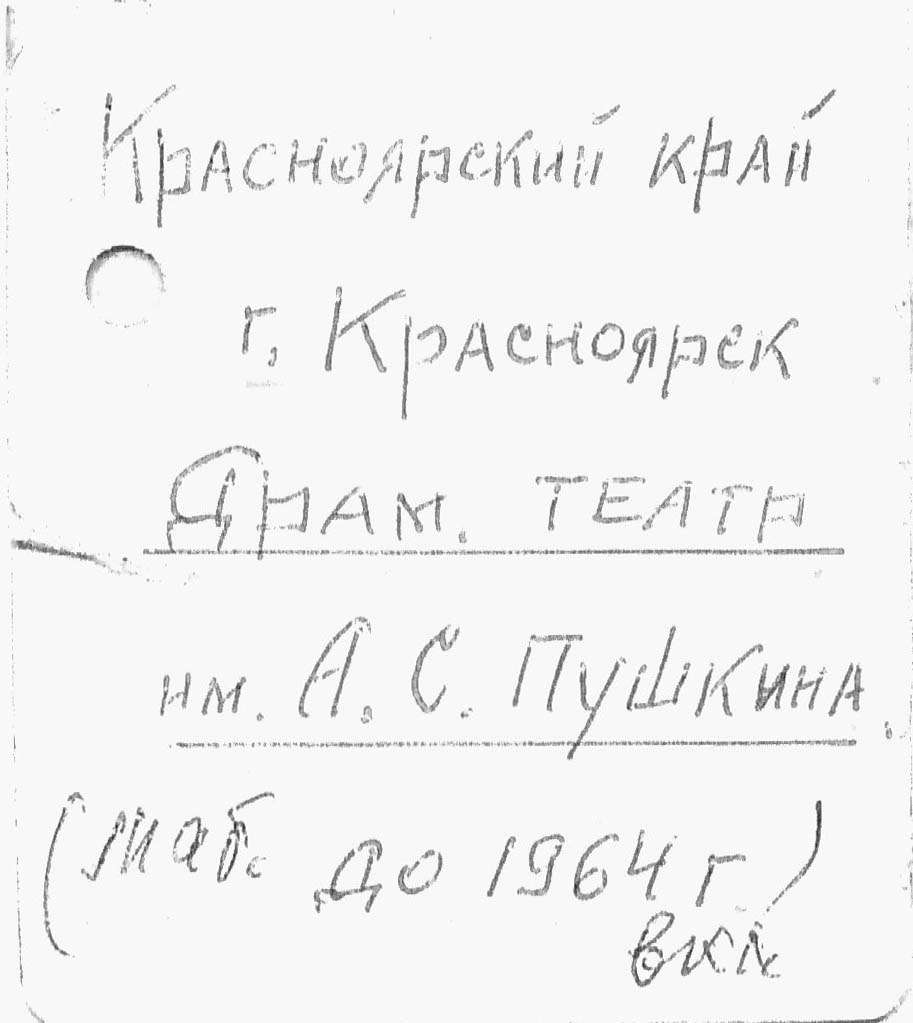 Красноярский край
г. Красноярск
Драм. театр
им. А. С. Пушкина.
(маб. до 1964 г.)
вкл.